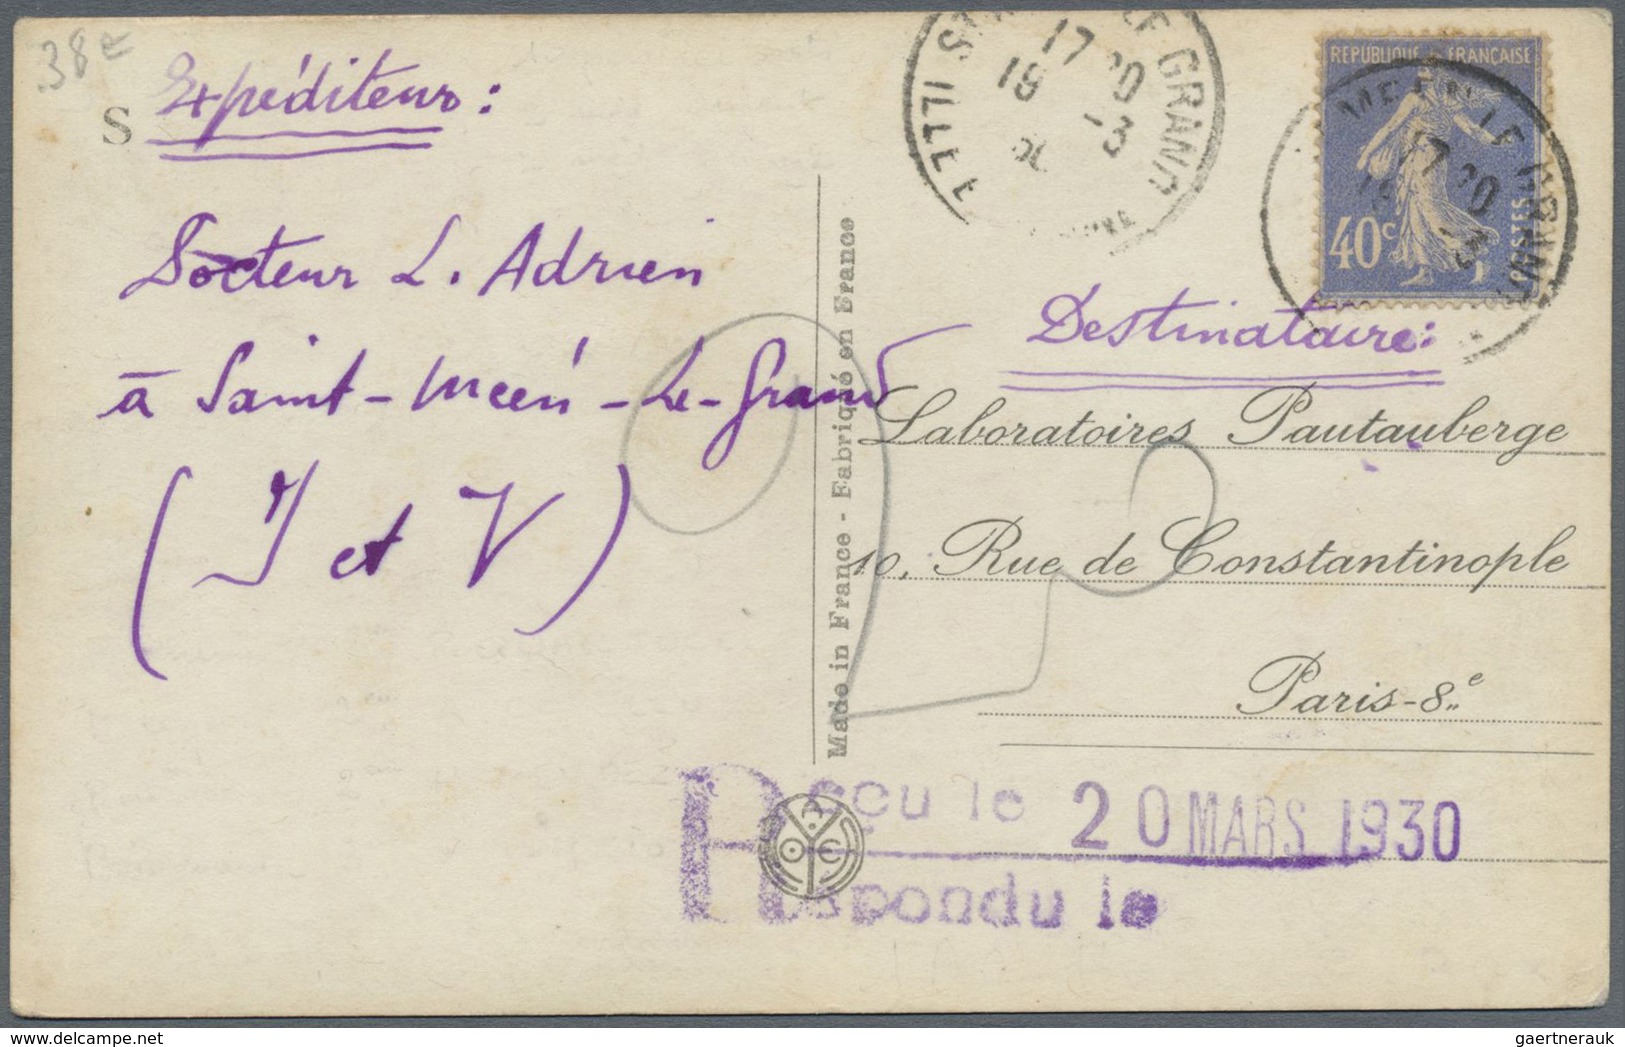 38e
S
Expéditeur:
Docteur L. Adrien
à Saint-Méen-Le-Grand
(I et V)
Made in France - Fabriqué en France
LE GRAND
17 20
19 -3
30
ILLE
RÉPUBLIQUE FRANÇAISE
40c
POSTES
LE GRAND
17 20
Destinataire:
Laboratoires Pautauberge
10, Rue de Constantinople
Paris-8e
Reçu le 20 MARS 1930
Répondu le
delcampe.net
gaertnerauk